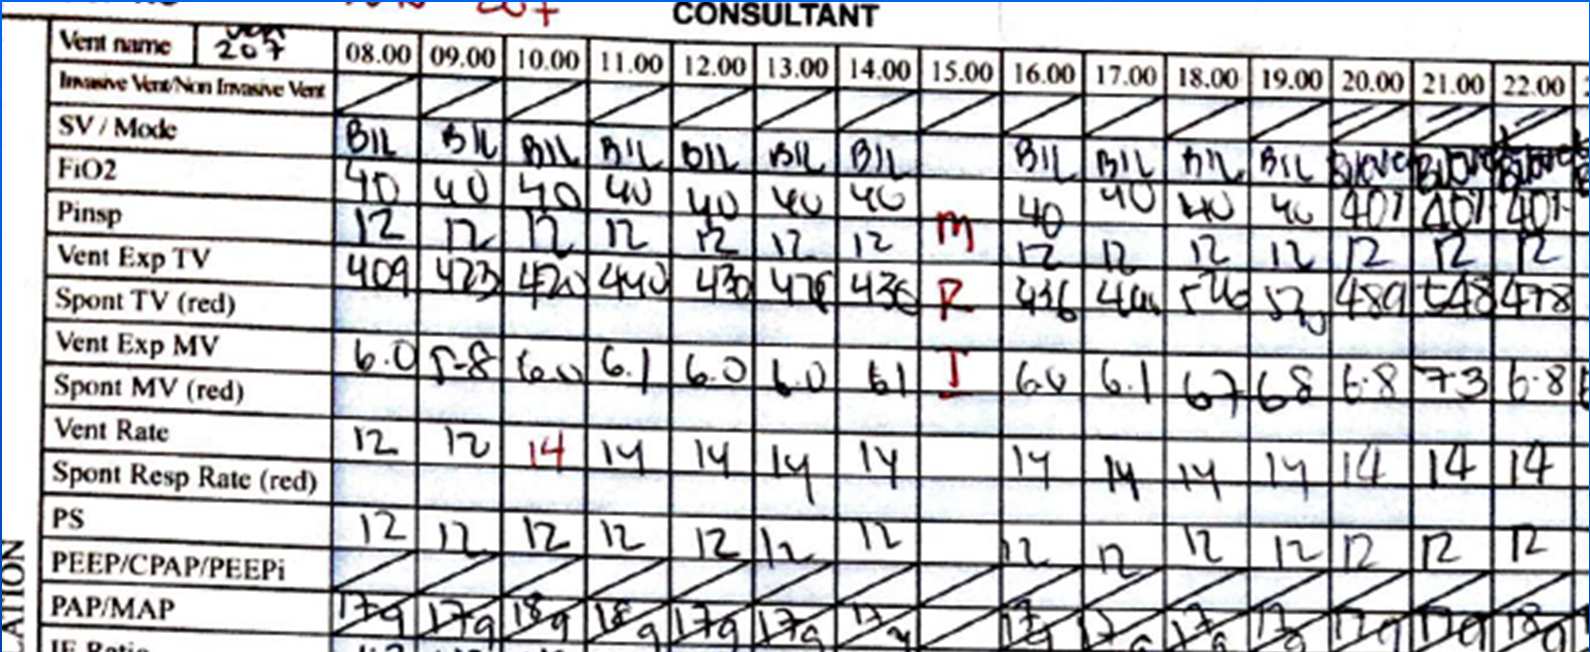 207
CONSULTANT
Vent name 207 08.00 09.00 10.00 11.00 12.00 13.00 14.00 15.00 16.00 17.00 18.00 19.00 20.00 21.00 22.00
Invasive Vent/Non Invasive Vent
SV / Mode BIL BIL BIL BIL BIL BIL BIL BIL BIL BIL BIL
FiO2 40 40 40 40 40 40 40 40 40 40 40
Pinsp 12 12 12 12 12 12 12 M 12 12 12 12 12 12 12
Vent Exp TV 409 423 420 440 430 436 R 436 489 548 478
Spont TV (red)
Vent Exp MV 6.0 5.8 6.0 6.1 6.0 6.0 6.1 I 6.1 6.7 6.8 6.8 7.3 6.8
Spont MV (red)
Vent Rate 12 12 14 14 14 14 14 14 14 14 14 14 14 14
Spont Resp Rate (red)
PS 12 12 12 12 12 12 12 12 12 12 12 12 12 12
PEEP/CPAP/PEEPi
PAP/MAP 17/9 17/9 18/9 18/9 17/9 17/9 17/9 17/9 17/9 18/9
IE Ratio